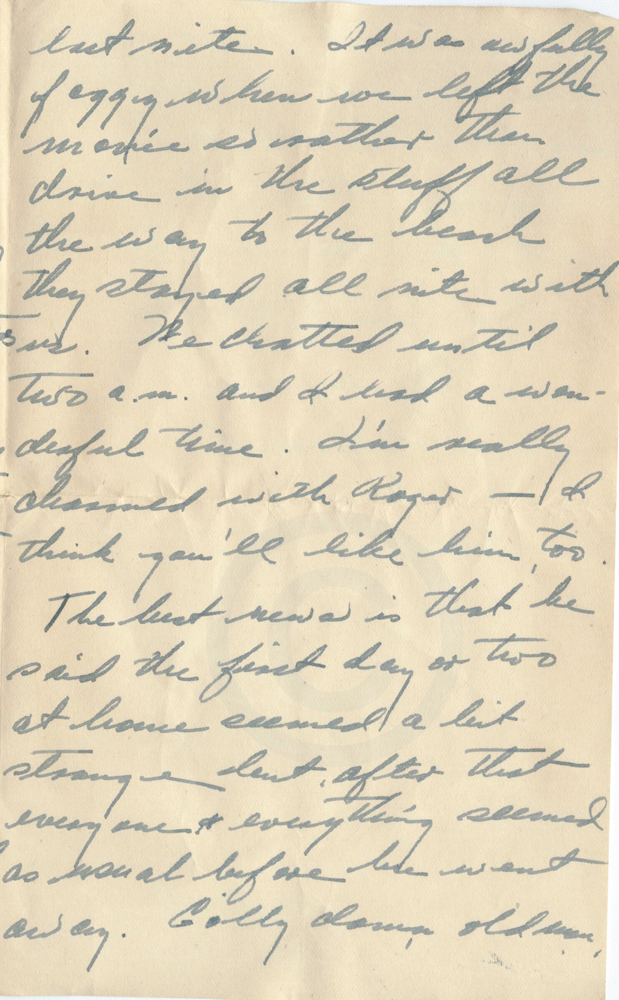 last nite. It was awfully
foggy when we left the
movie so rather than
drive in the stuff all
the way to the beach
they stayed all nite with
us. We chatted until
two a.m. and I had a won-
derful time. I'm really
charmed with Roger — I
think you'll like him, too.
The best news is that he
said the first day or two
at home seemed a bit
strange but, after that
everyone & everything seemed
as usual before he went
away. Golly damn, old man,